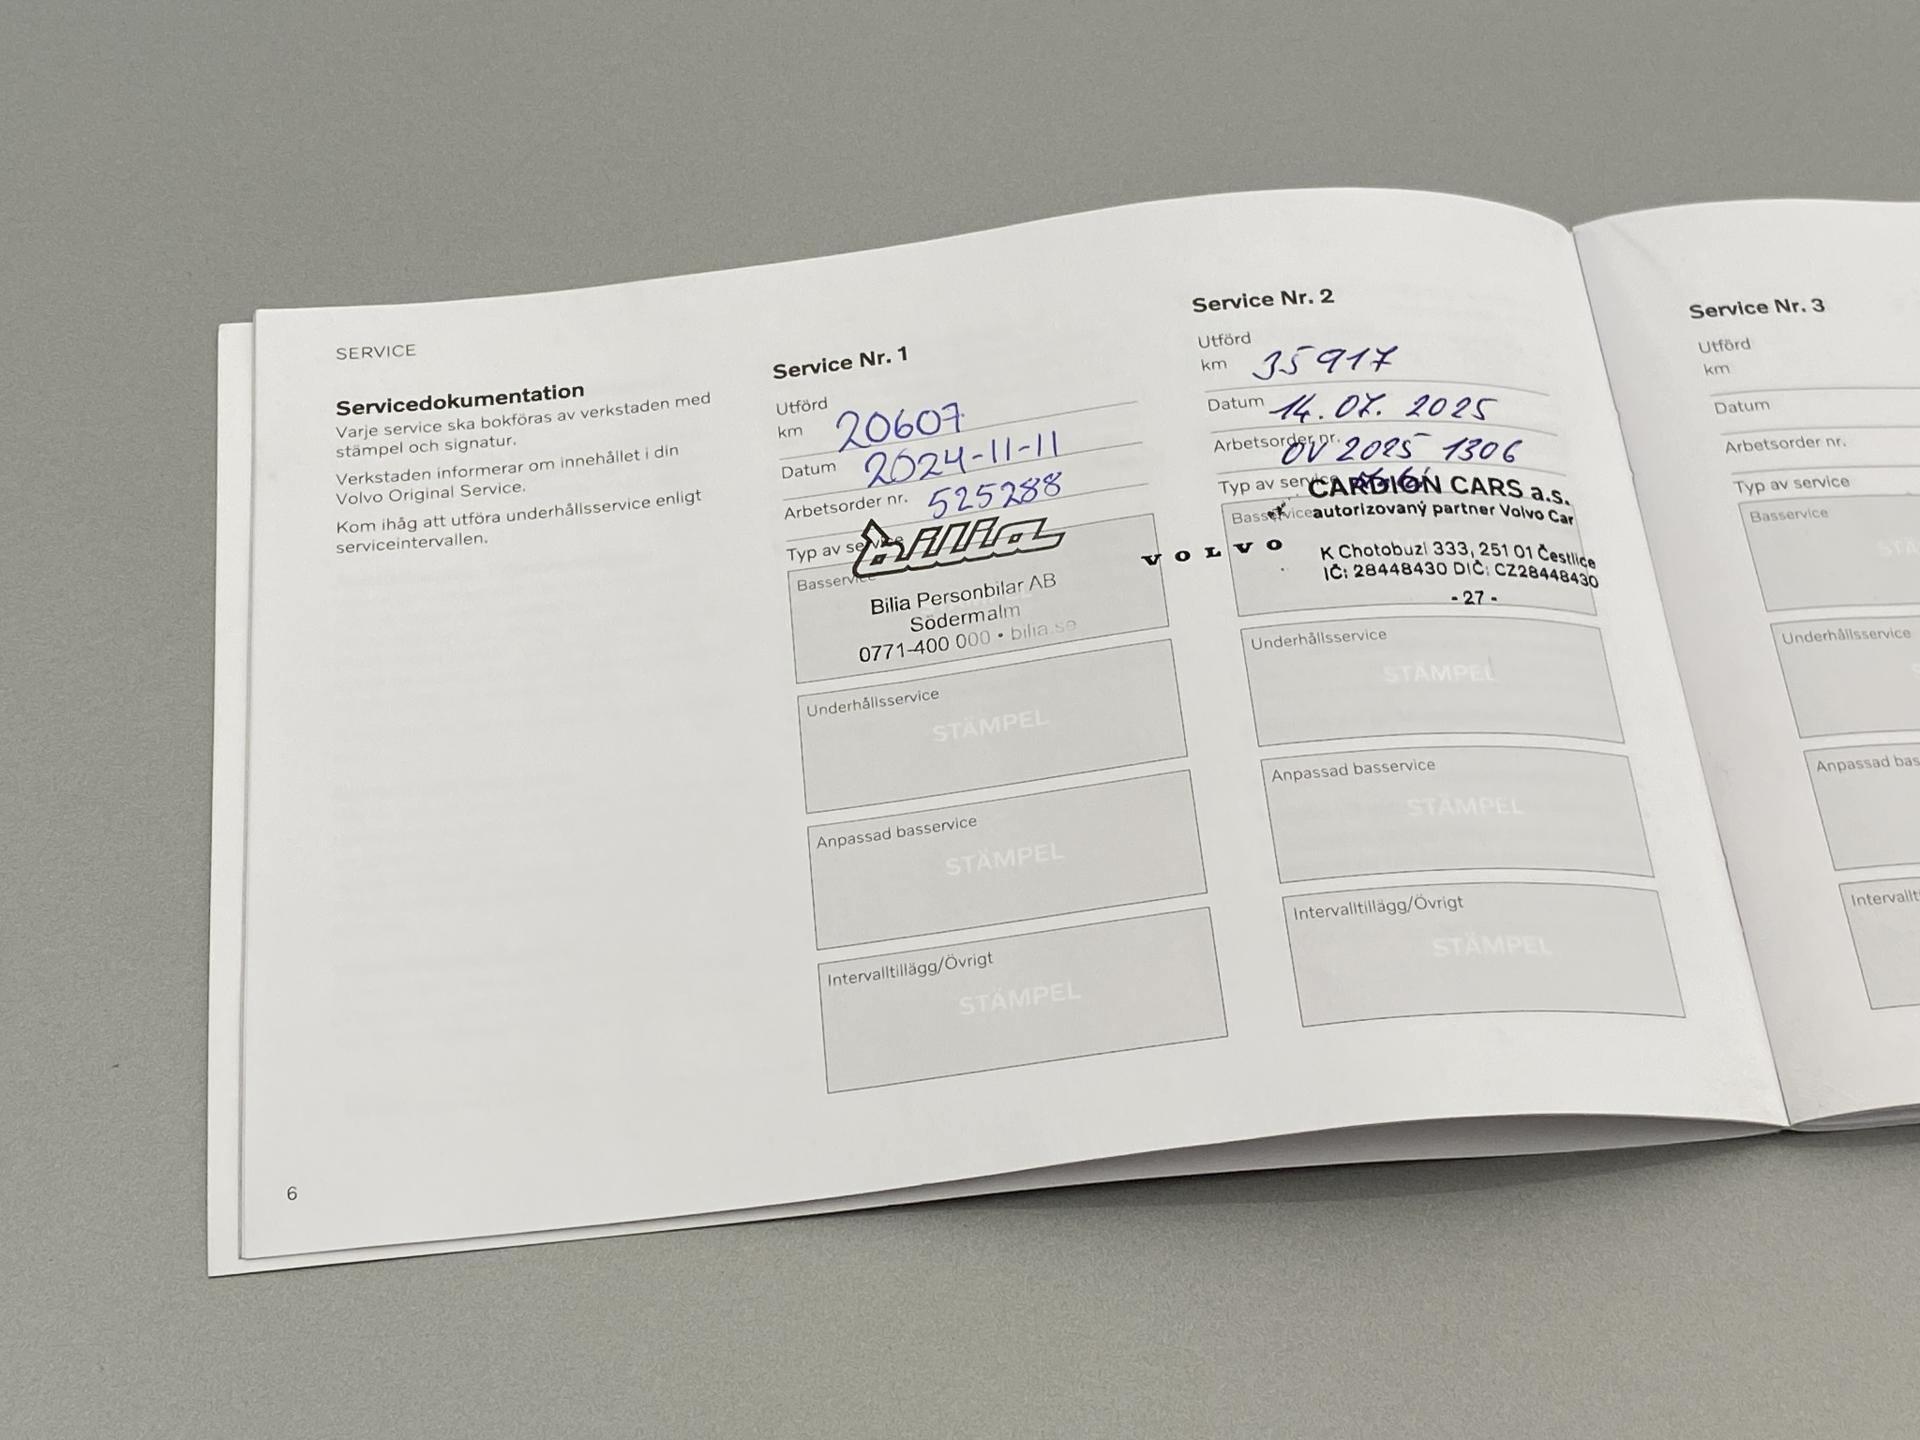 SERVICE
Servicedokumentation
Varje service ska bokföras av verkstaden med
stämpel och signatur.
Verkstaden informerar om innehållet i din
Volvo Original Service.
Kom ihåg att utföra underhållsservice enligt
serviceintervallen.
6
Service Nr. 1
Utförd
km 20607
Datum 2024-11-11
Arbetsorder nr. 525288
Typ av service
bilia
Basservice
Bilia Personbilar AB
Södermalm
0771-400 000 • bilia.se
Underhållsservice
STÄMPEL
Anpassad basservice
STÄMPEL
Intervalltillägg/Övrigt
STÄMPEL
Service Nr. 2
Utförd
km 35917
Datum 14.07.2025
Arbetsorder nr. OV 2025 1306
Typ av service
CARDION CARS a.s.
Basservice
autorizovaný partner Volvo Car
VOLVO
K Chotobuzi 333, 251 01 Čestlice
IČ: 28448430 DIČ: CZ28448430
- 27 -
Underhållsservice
STÄMPEL
Anpassad basservice
STÄMPEL
Intervalltillägg/Övrigt
STÄMPEL
Service Nr. 3
Utförd
km
Datum
Arbetsorder nr.
Typ av service
Basservice
STÄ
Underhållsservice
Anpassad bas
Intervallt